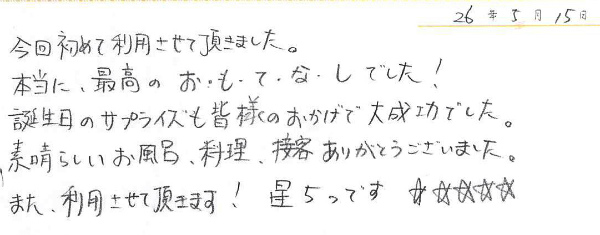 26年5月15日
今回初めて利用させて頂きました。
本当に、最高のお・も・て・な・しでした！
誕生日のサプライズも皆様のおかげで大成功でした。
素晴らしいお風呂、料理、接客ありがとうございました。
また、利用させて頂きます！ 星5つです ☆☆☆☆☆